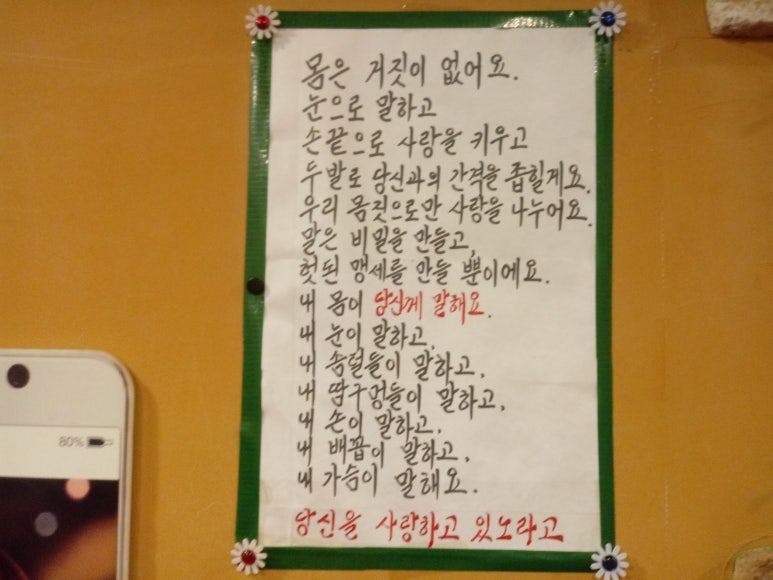 몸은 거짓이 없어요.
눈으로 말하고
손끝으로 사랑을 키우고
두발로 당신과의 간격을 좁힐게요.
우리 몸짓으로만 사랑을 나누어요.
말은 비밀을 만들고,
헛된 맹세를 만들 뿐이에요.
내 몸이 당신께 말해요.
내 눈이 말하고,
내 솜털들이 말하고,
내 땀구멍들이 말하고,
내 손이 말하고,
내 배꼽이 말하고,
내 가슴이 말해요.
당신을 사랑하고 있노라고
80%